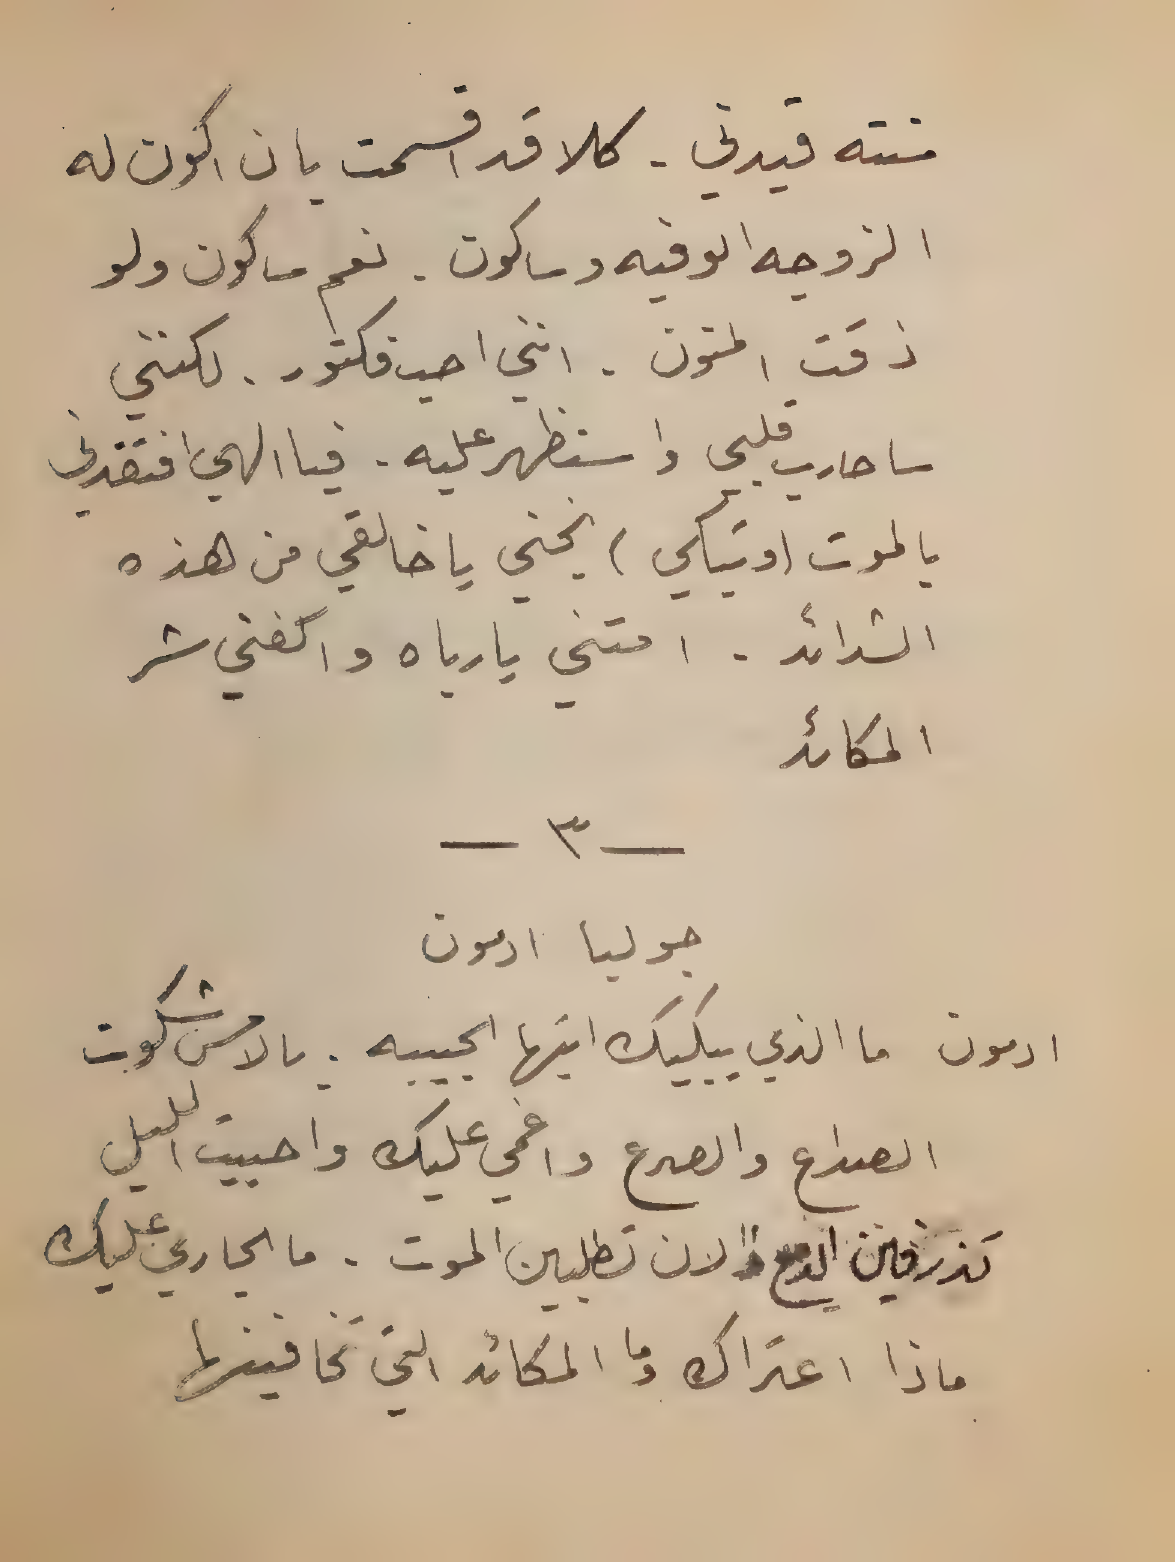 منته قيدني - كلا قد اقسمت بان اكون له
الزوجه الوفيه وساكون . نعم ساكون ولو
ذقت المنون . انني احب فكتور . لكنني
ساحارب قلبي واستظهر عليه . فيا الهي افتقدني
بالموت (وتبكي) نجني يا خالقي من هذه
الشدائد . امتني يارباه واكفني شر
المكائد
— ٣ —
جوليا ادمون
ادمون ما الذي يبكيك ايتها الحبيبه . بالامس شكوت
الصداع والصرع واغمي عليك واحييت الليل
تذرفين الدمع والان تطلبين الموت . ما الجاري عليك
ماذا اعتراك وما المكائد التي تخافينها